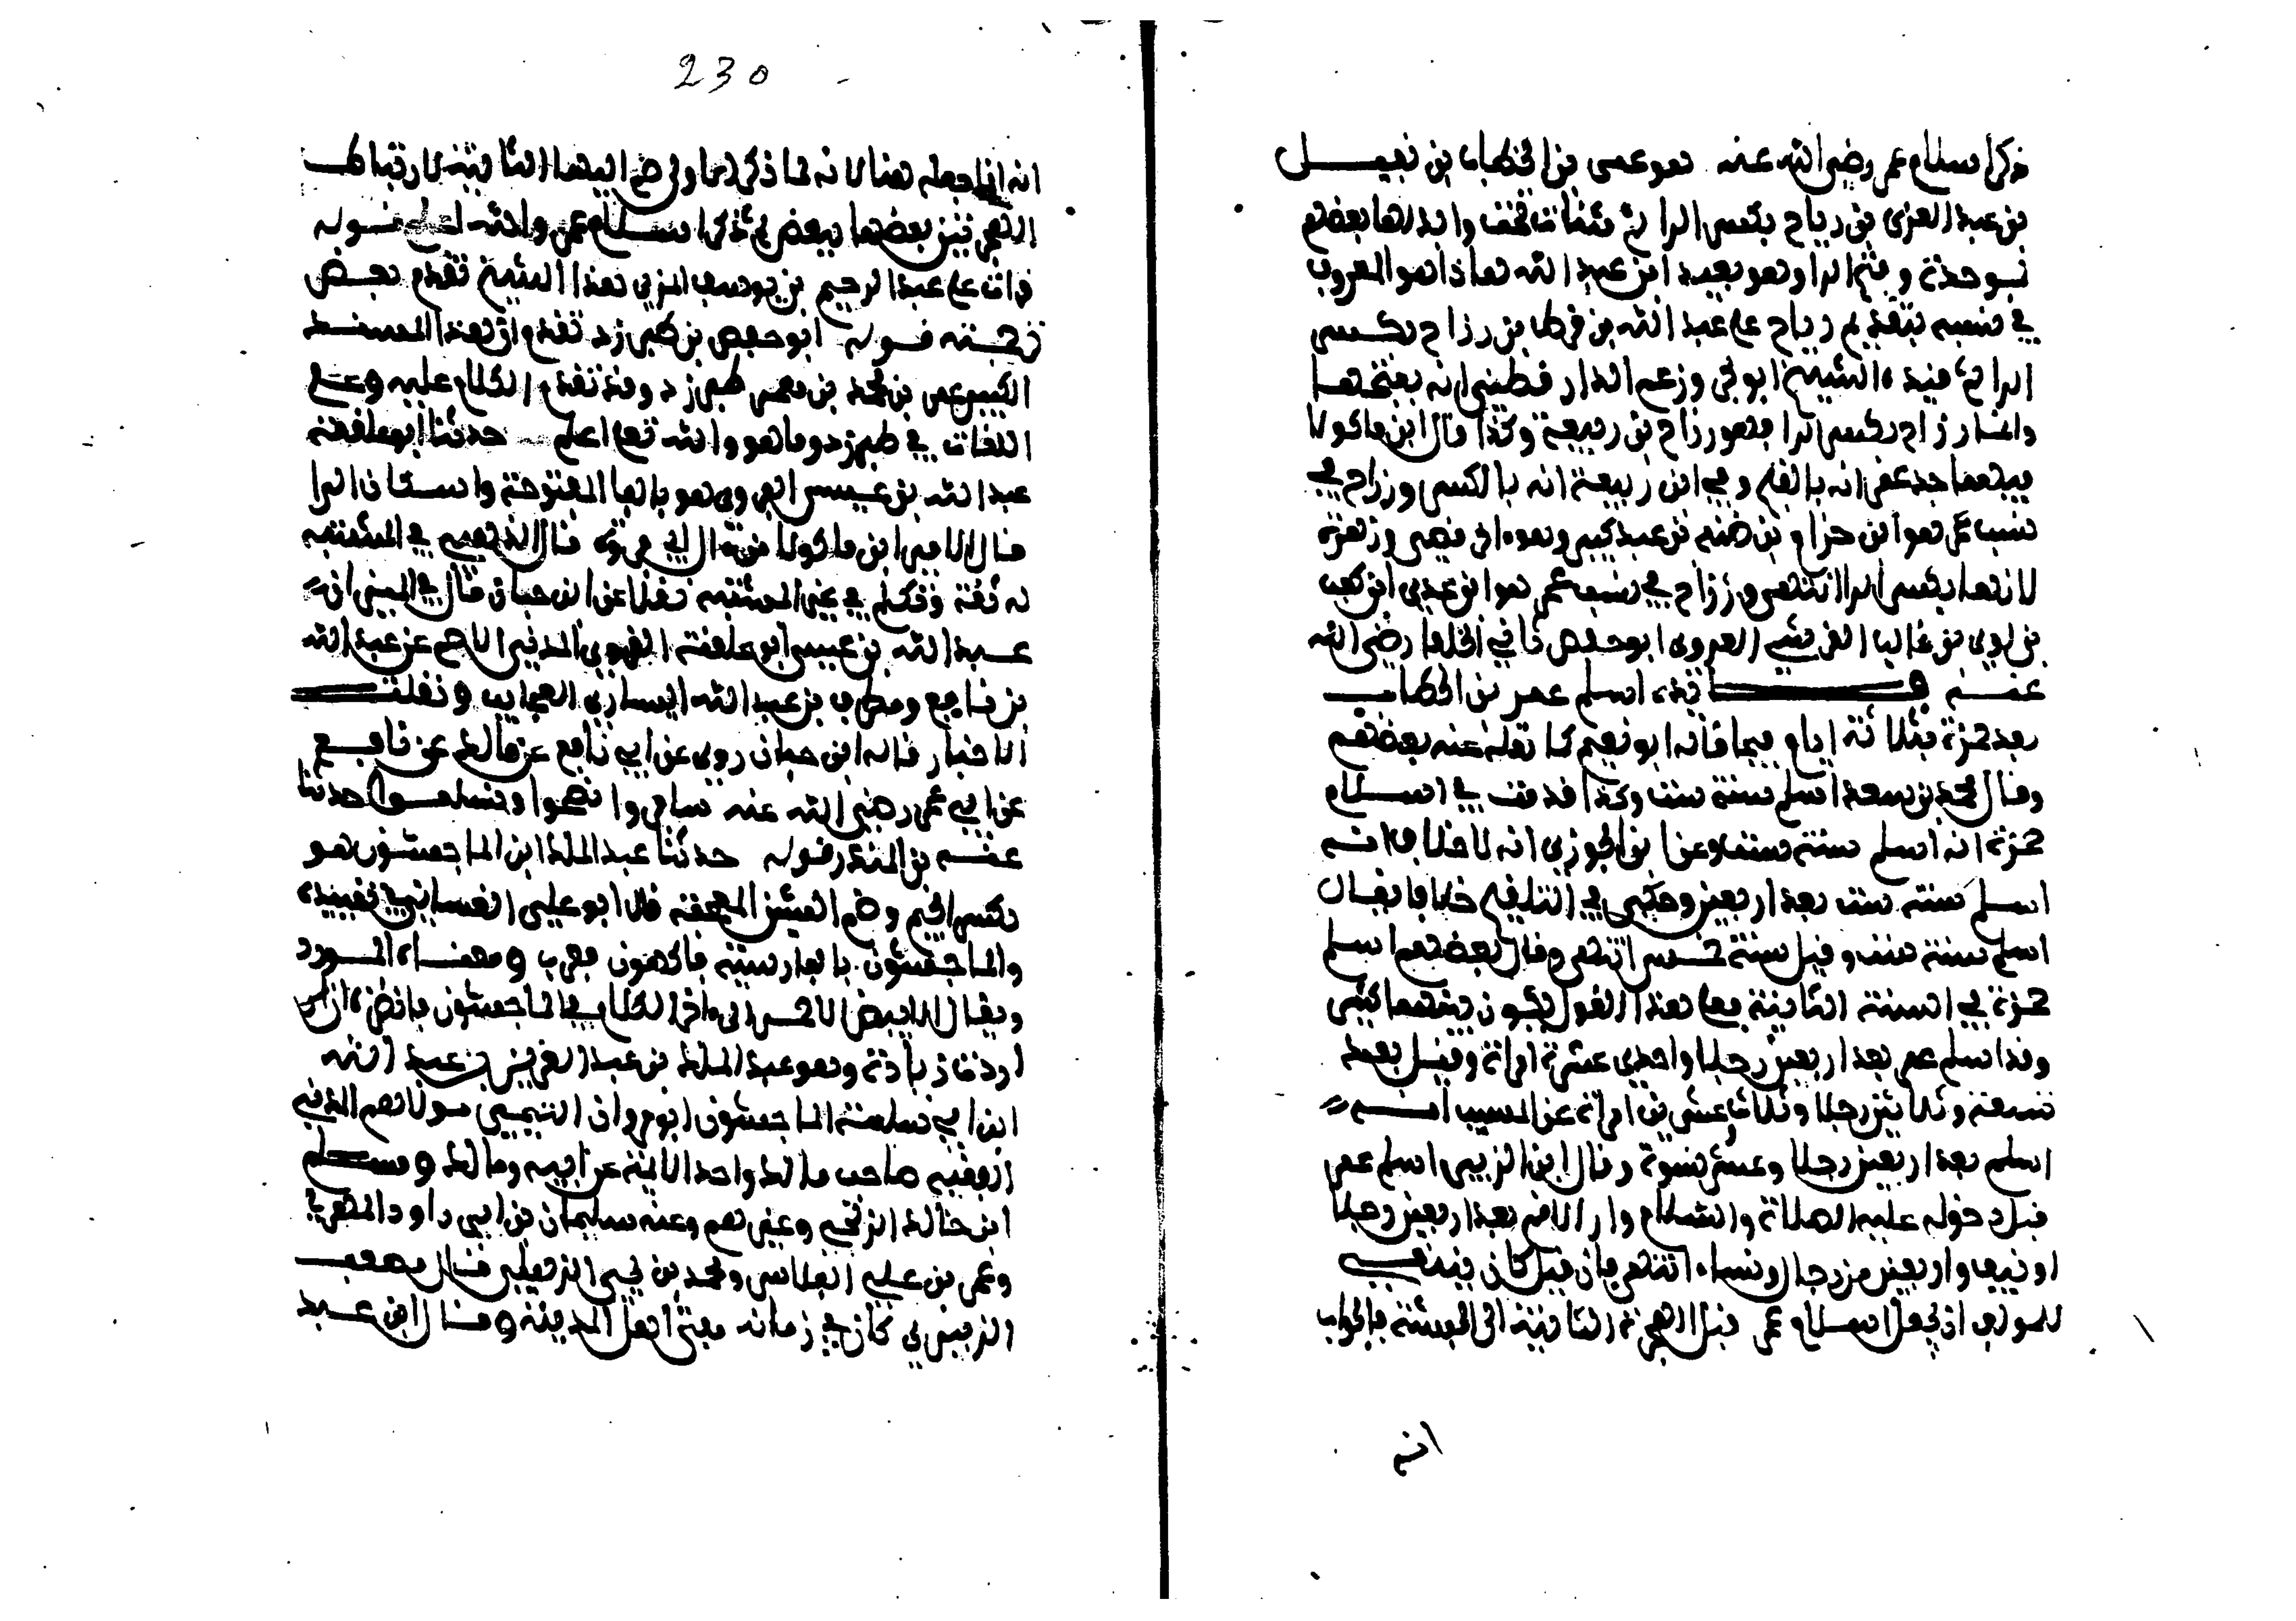 ذكر اسلام عمر رضي الله عنه هو عمر بن الخطاب بن نفيل
بن عبد العزى بن رياح بكسر الراء ثم مثناة تحت وابدلها بعضهم
بموحدة وبفتح الراء وهو بعيد ابن عبد الله هذا هو المعروف
في نسبه بتقديم رياح على عبد الله بن قرط بن رزاح بكسر
الراء قيده الشيخ ابو وزعم الدارقطني انه بفتحها
وانما رزاح بكسر الراء فهو رزاح بن ربيعة وكذا قال ابن ماكولا
في ابن ربيعة انه بالكسر ورزاح في
نسب عمر هو ابن حزام بن ضنة بن عبد كبير وهو اخو قصي وزهرة
لامهما بكسر الراء انتهى ورزاح في نسب عمر هو ابن عدي ابن كعب
بن لوي بن غالب القرشي العدوي ابو حفص ثاني الخلفا رضي الله
عنه فائدة اسلم عمر بن الخطاب
بعد حمزة بثلاثة ايام فيما قاله ابو نعيم كما نقله عنه بعضهم
وقال محمد بن سعد اسلم سنة ست وكذا قدمت في اسلام
حمزة انه اسلم سنة ست وعن ابن الجوزي انه لا خلاف انه
اسلم سنة ست بعد اربعين وحكى في التلقيح خلافا فقال
اسلم سنة ست وقيل سنة خمس انتهى وقال بعضهم اسلم
حمزة في السنة الثانية فعلى هذا القول يكون بينهما كثير
وقد اسلم عمر بعد اربعين رجلا واحدى عشرة امراة وقيل بعد
تسعة وثلاثين رجلا وثلاث وعشرين امراة عن المسيب انه
اسلم بعد اربعين رجلا وعشر نسوة وقال ابن الزبير اسلم عمر
قبل دخوله عليه الصلاة والسلام دار الارقم بعد اربعين رجلا
او نيف واربعين من رجال ونساء انتهى فان قيل كان ينبغي
للمولف ان يجعل اسلام عمر قبل الهجرة الثانية الى الحبشة فالجواب
انه
230
انه انما جعله هنا لانه لما ذكر الاولى ضم اليها الثانية لارتباط
الهجرتين بعضهما ببعض ثم ذكر اسلام عمر والله اعلم قوله
قرات على عبد الرحيم بن يوسف المزي هذا الشيخ تقدم بعض
ترجمته قوله ابو حفص بن طبرزد تقدم ان هذا المسند
الكبير عمر بن محمد بن معمر طبرزد وقد تقدم الكلام عليه وعلى
اللغات في طبرزد وما هو والله تعالى اعلم حدثنا ابو علقمة
عبد الله بن عيسى الفروي هو بالفا المفتوحة واسكان الرا
قال الامير ابن ماكولا من ال ابي فروة قال الذهبي في المشتبه
له ثقة وتكلم في غير المشتبه نقلا عن ابن حبان قال في الميزان
عبد الله بن عيسى ابو علقمة الفروي المدني الاصم عن عبد الله
بن نافع ومطرف بن عبد الله اليساري العجايب ونقلت
الاخبار قاله ابن حبان روى عن ابن نافع عن مالك عن نافع
عن ابن عمر رضي الله عنه سافروا تصحوا وتسلموا حدثنا
عنه بن المنذر قوله حدثنا عبد الملك ابن الماجشون هو
بكسر الجيم وضم الشين المعجمة قال ابو علي الغساني في تقييده
والماجشون بالفارسية ماكهون فعرب ومعناه المورد
ويقال الابيض الاحمر الى اخر الكلام في الماجشون فانظره ان
اردت زيادة وهو عبد الملك بن عبد العزيز بن عبد الله
ابن ابي سلمة الماجشون ابو مروان التيمي مولاهم المدني
الفقيه صاحب مالك واحد الايمة عن ابيه ومالك ومسلم
ابن خالد الزنجي وغيرهم وعنه سليمان بن ابي داود المهري
وعمر بن علي الفلاس ومحمد بن يحيى الذهلي قال مصعب
الزبيري كان في زمانه مفتي اهل المدينة وقال ابن عبد